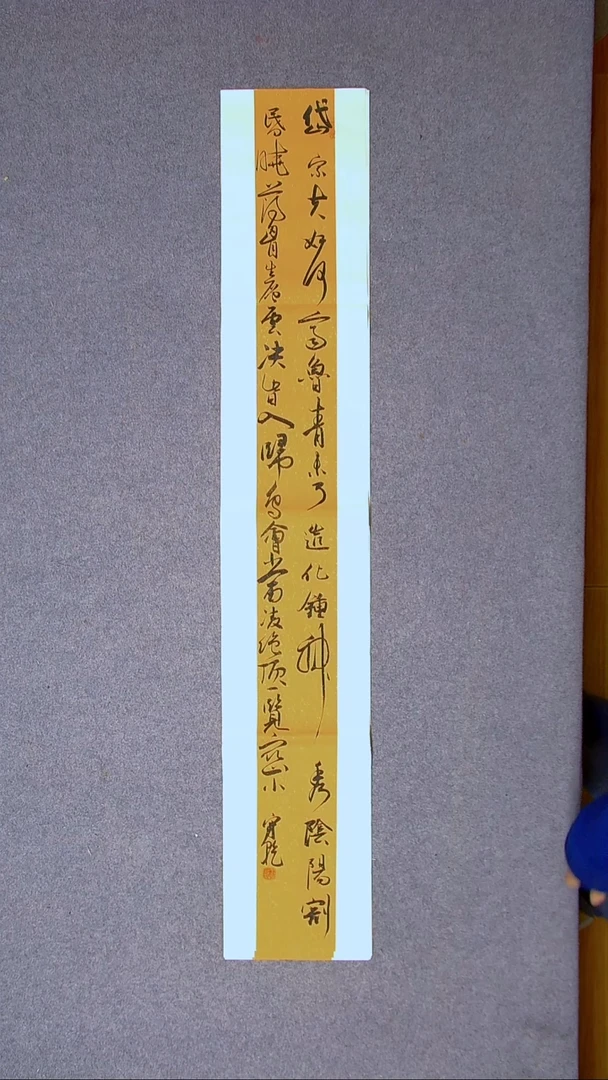 岱宗夫如何齊魯青未了造化鍾神秀陰陽割
昏曉蕩胷生層雲決眥入歸鳥會當凌絶頂一覽衆山小